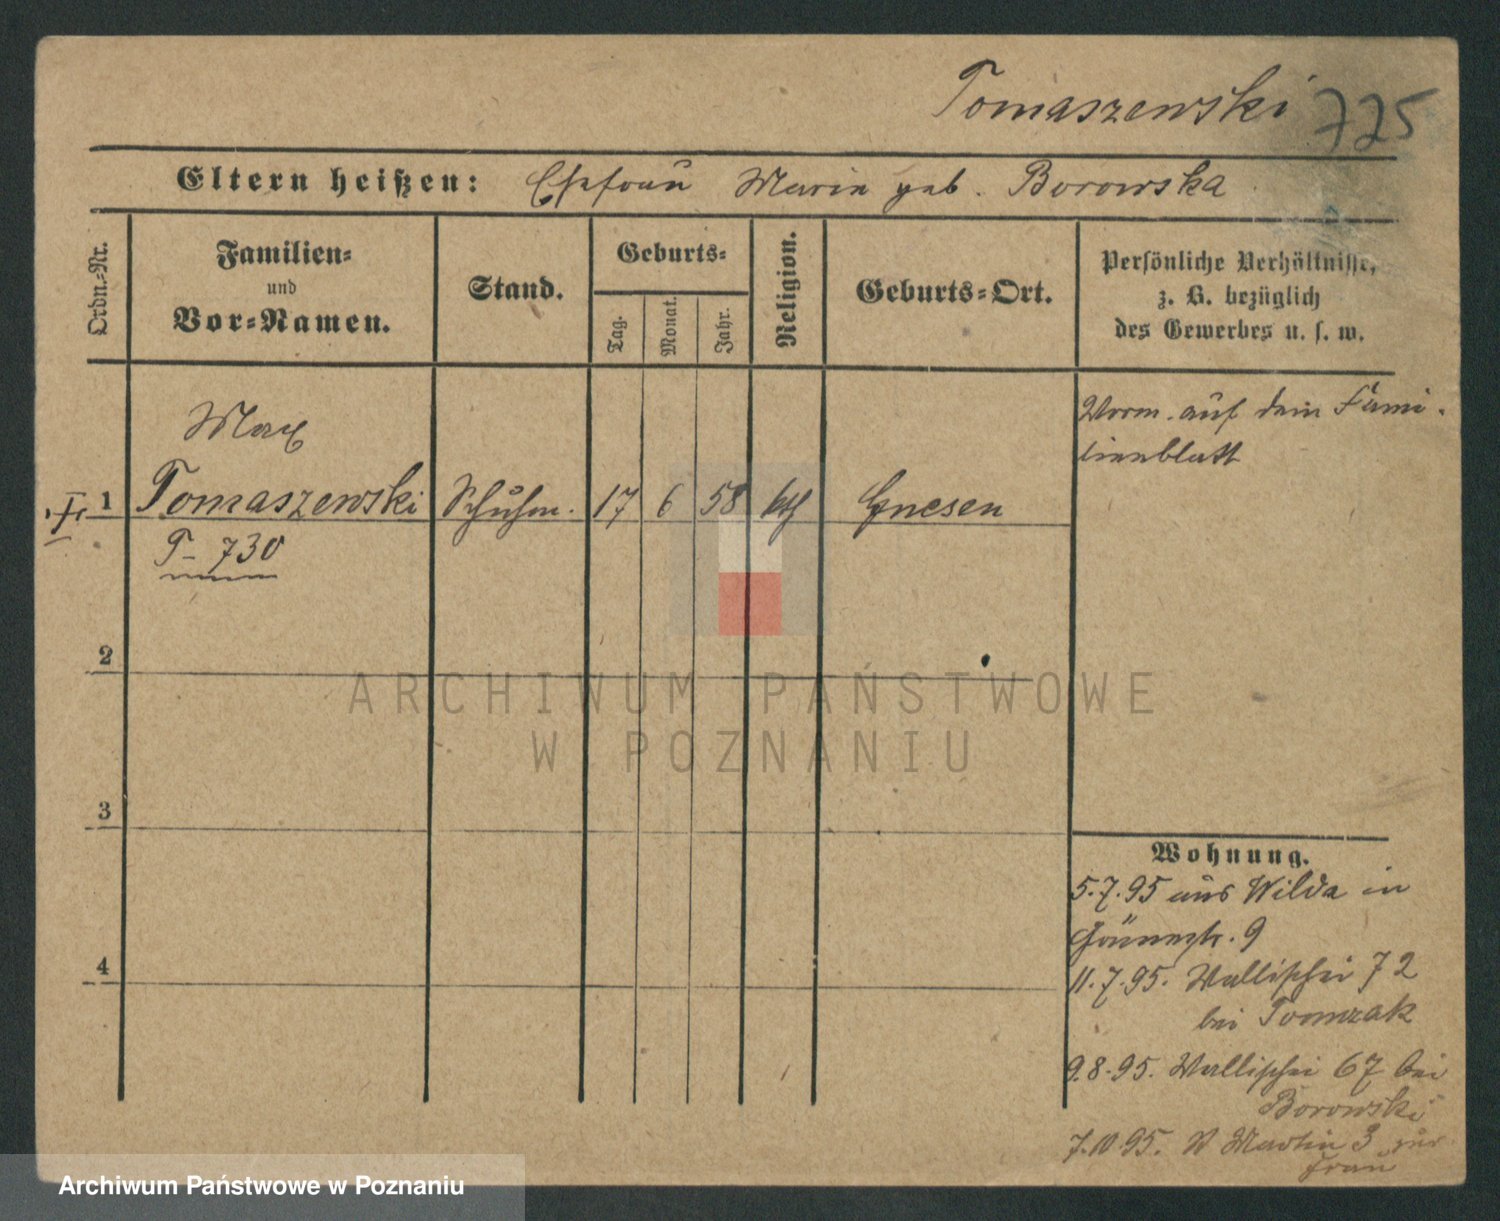 Tomaszewski 725
Eltern heißen: Ehefrau Maria geb. Borowska
Ordn.-Nr.
Familien-
und
Vor-Namen.
Stand.
Geburts-
Tag.
Monat.
Jahr.
Religion.
Geburts-Ort.
Persönliche Verhältnisse,
z. B. bezüglich
des Gewerbes u. s. w.
Max
1 Tomaszewski Schuhm. 17 6 58 kth Gnesen
T- 730
Verm. auf dem Fami-
lienblatt
2
3
4
Wohnung.
5.7.95 aus Wilda in
9
11.7.95. Wallischei 72
bei Tomczak
9.8.95. Wallischei 67 bei
Borowski
7.10.95. St Martin 3 zur
Frau
ARCHIWUM PAŃSTWOWE
W POZNANIU
Archiwum Państwowe w Poznaniu